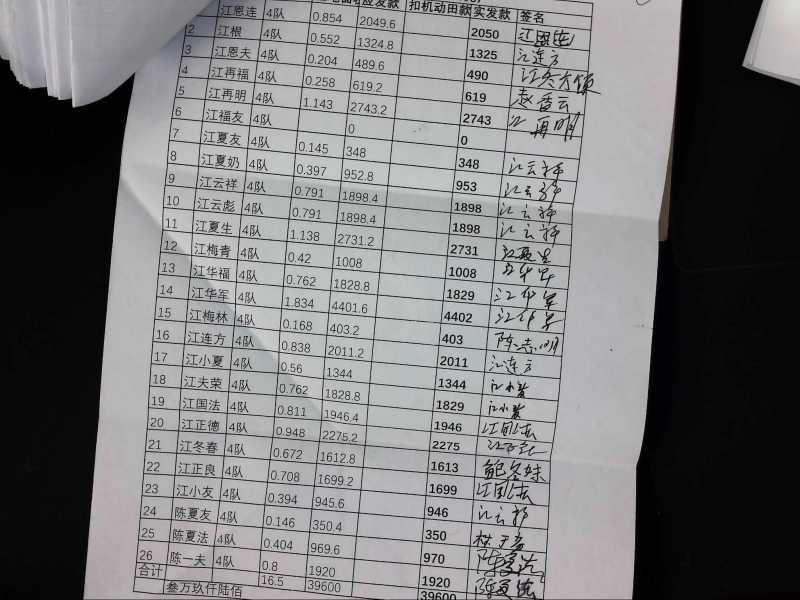 应发款 扣机动田款 实发款 签名
江恩连 4队 0.854 2049.6 2050 江恩连
2 江根 4队 0.552 1324.8 1325 江连方
3 江恩夫 4队 0.204 489.6 490
4 江再福 4队 0.258 619.2 619 赵香云
5 江再明 4队 1.143 2743.2 2743 江再明
6 江福友 4队 0 0
7 江夏友 4队 0.145 348 348 江云祥
8 江夏奶 4队 0.397 952.8 953 江云祥
9 江云祥 4队 0.791 1898.4 1898 江云祥
10 江云彪 4队 0.791 1898.4 1898 江云祥
11 江夏生 4队 1.138 2731.2 2731 江夏生
12 江梅青 4队 0.42 1008 1008 江华军
13 江华福 4队 0.762 1828.8 1829 江华军
14 江华军 4队 1.834 4401.6 4402 江华军
15 江梅林 4队 0.168 403.2 403 陈志明
16 江连方 4队 0.838 2011.2 2011 江连方
17 江小夏 4队 0.56 1344 1344
18 江夫荣 4队 0.762 1828.8 1829
19 江国法 4队 0.811 1946.4 1946 江国法
20 江正德 4队 0.948 2275.2 2275
21 江冬春 4队 0.672 1612.8 1613 鲍冬妹
22 江正良 4队 0.708 1699.2 1699 江国法
23 江小友 4队 0.394 945.6 946 江云祥
24 陈夏友 4队 0.146 350.4 350
25 陈夏法 4队 0.404 969.6 970 陈夏法
26 陈一夫 4队 0.8 1920 1920 陈夏法
合计 叁万玖仟陆佰 16.5 39600 39600